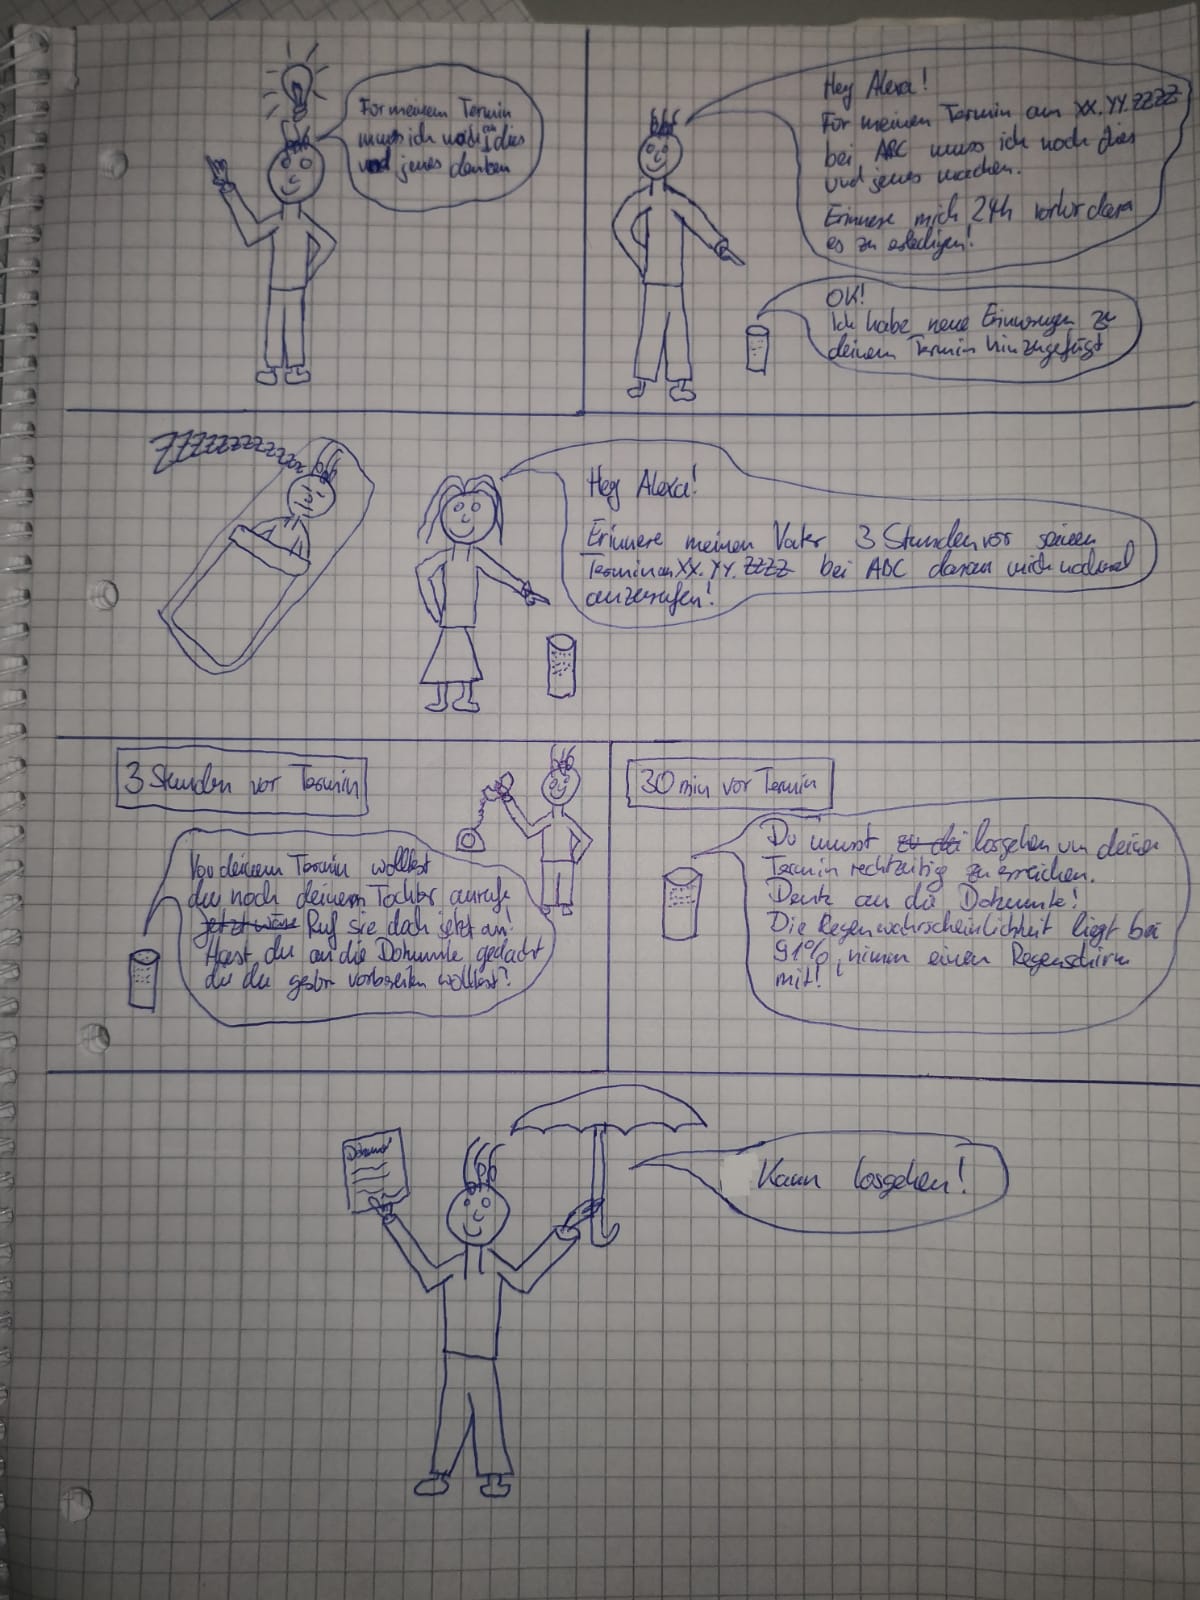 Für meinen Termin
muss ich noch an dies
und jenes denken
Hey Alexa!
Für meinen Termin am XX.YY.ZZZZ
bei ABC muss ich noch dies
und jenes machen.
Erinnere mich 24h vorher daran
es zu erledigen!
OK!
Ich habe neue Erinnerungen zu
deinem Termin hinzugefügt
ZZZZZZZZZZZZ
Hey Alexa!
Erinnere meinen Vater 3 Stunden vor seinen
Termin am XX.YY.ZZZZ bei ABC daran mich nochmal
anzurufen!
3 Stunden vor Termin
Vor deinem Termin wolltest
du noch deinem Tochter anrufe
jetzt wäre Ruf sie doch jetzt an!
Hast du an die Dokumnte gedacht
die du gestern vorbereiten wolltest?
30 min vor Termin
Du musst losgehen um deinen
Termin rechtzeitig zu erreichen.
Denk an die Dokumnte!
Die Regenwahrscheinlichkeit liegt bei
91%, nimm einen Regenschirm
mit!
Dokument
Kann losgehen!